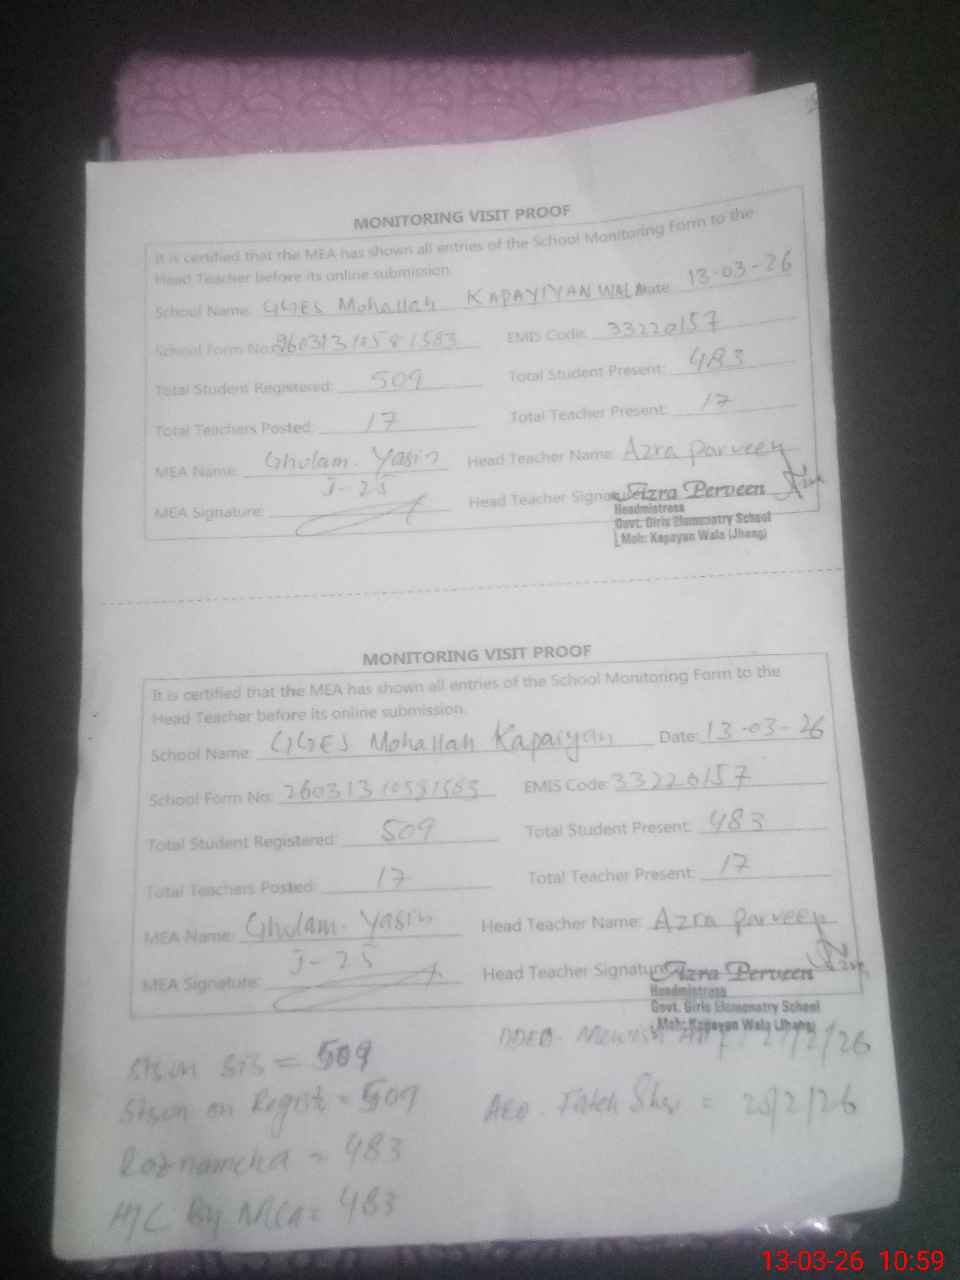 MONITORING VISIT PROOF
It is certified that the MEA has shown all entries of the School Monitoring Form to the
Head Teacher before its online submission.
School Name: GGES Mohallah KAPAYIYAN WALA Date: 13-03-26
School Form No: 2603131058 1583 EMIS Code: 33220157
Total Student Registered: 509 Total Student Present: 483
Total Teachers Posted: 17 Total Teacher Present: 17
MEA Name: Ghulam. Yasin Head Teacher Name: Azra parveen
J-25
MEA Signature: Head Teacher Signature: Azra Perveen
Headmistress
Govt. Girls Elemenatry School
Moh: Kapayan Wala (Jhang)
MONITORING VISIT PROOF
It is certified that the MEA has shown all entries of the School Monitoring Form to the
Head Teacher before its online submission.
School Name: GGES Mohallah Kapaiyan Date: 13-03-26
School Form No: 26031310581583 EMIS Code: 33220157
Total Student Registered: 509 Total Student Present: 483
Total Teachers Posted: 17 Total Teacher Present: 17
MEA Name: Ghulam. Yasin Head Teacher Name: Azra parveen
J-25
MEA Signature: Head Teacher Signature: Azra Perveen
Headmistress
Govt. Girls Elemenatry School
Moh: Kapayan Wala (Jhang)
DDEO. 27/2/26
on SIS = 509
on Regist = 509
AEO. Fateh Sher = 20/2/26
Roznamcha = 483
H/C By MEA = 483
13-03-26 10:59